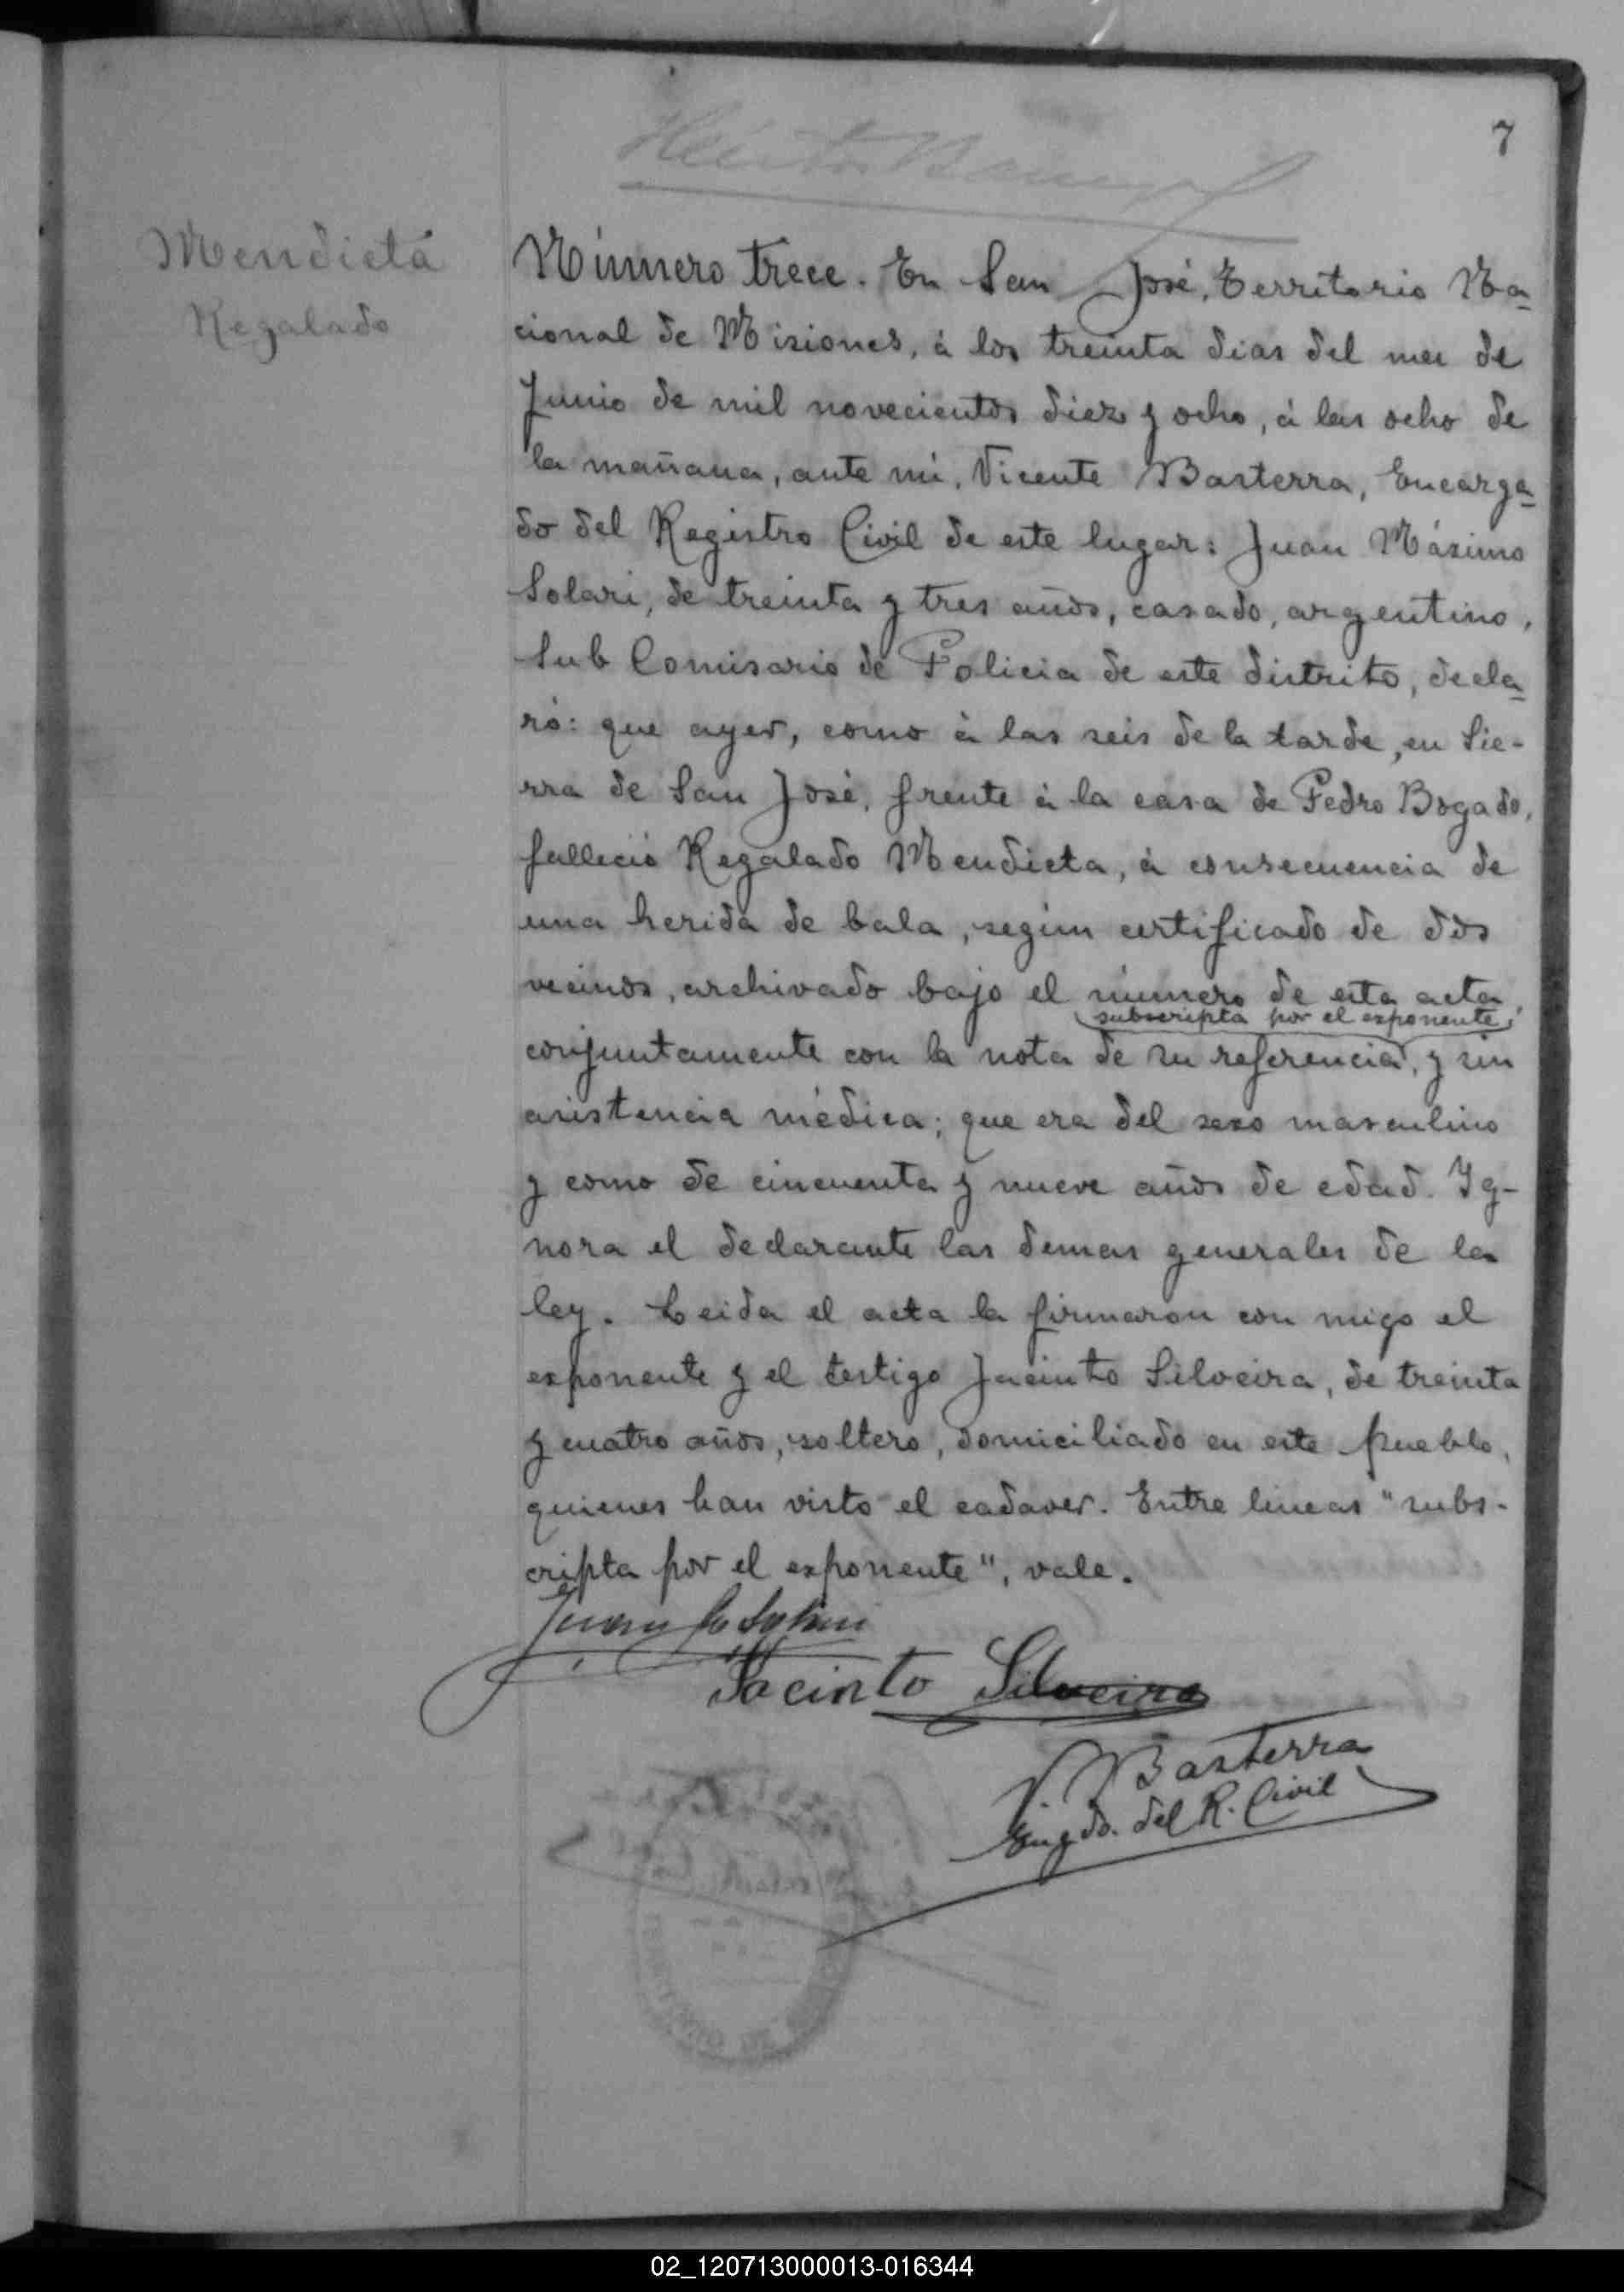 7
Mendieta
Regalado
Número trece. En San José, Territorio Na-
cional de Misiones, à los treinta dias del mes de
Junio de mil novecientos diez y ocho, à las ocho de
la mañana, ante mi, Vicente Basterra, Encarga-
do del Registro Civil de este lugar: Juan Máximo
Solari, de treinta y tres años, casado, argentino,
Sub Comisario de Policia de este distrito, decla-
ró: que ayer, como à las seis de la tarde, en Sie-
rra de San José, frente à la casa de Pedro Bogado,
falleció Regalado Mendieta, à consecuencia de
una herida de bala, según certificado de dos
vecinos, archivado bajo el número de esta acta,
subscripta por el exponente,
conjuntamente con la nota de su referencia, y sin
asistencia médica; que era del sexo masculino
y como de cincuenta y nueve años de edad. Ig-
nora el declarante las demas generales de la
ley. Leida el acta la firmaron con migo el
exponente y el testigo Jacinto Silveira, de treinta
y cuatro años, soltero, domiciliado en este pueblo,
quienes han visto el cadaver. Entre lineas "subs-
cripta por el exponente", vale.
Jacinto Silveira
V. Basterra
Engdo. del R. Civil
02_120713000013-016344